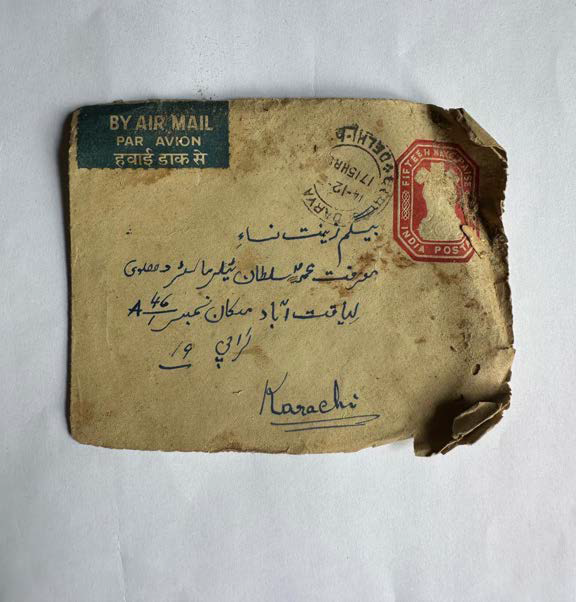 BY AIR MAIL
PAR AVION
हवाई डाक से
DELHI-6
14-12-
1715HRS
DARYA
FIFTEEN NAYE PAISE
INDIA POSTAGE
بیگم زینت نساء
معرفت محمد سلطان ٹیلر ماسٹر دھلوی
لیاقت آباد مکان نمبر A 46/1
کراچی 19
Karachi